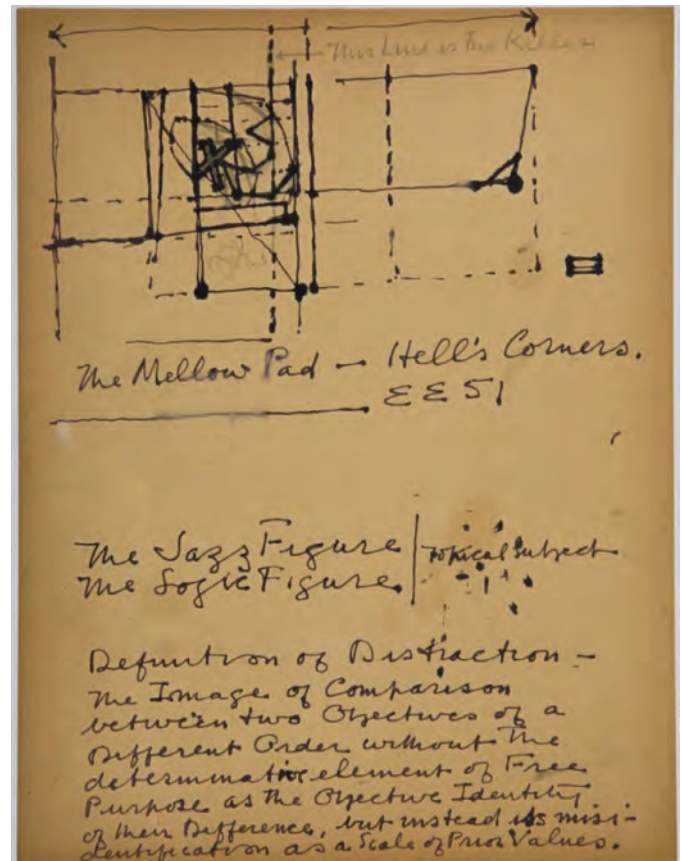 This Line is the Killer
The Mellow Pad — Hell's Corners.
EE51
The Jazz Figure
The Logic Figure
Topical Subject
Definition of Distraction —
The Iomage of Comparison
between two Objectives of a
Different Order without The
determinative element of Free
Purpose as the Objective Identity
of their Difference, but instead its misi-
dentification as a Scale of Prior Values.